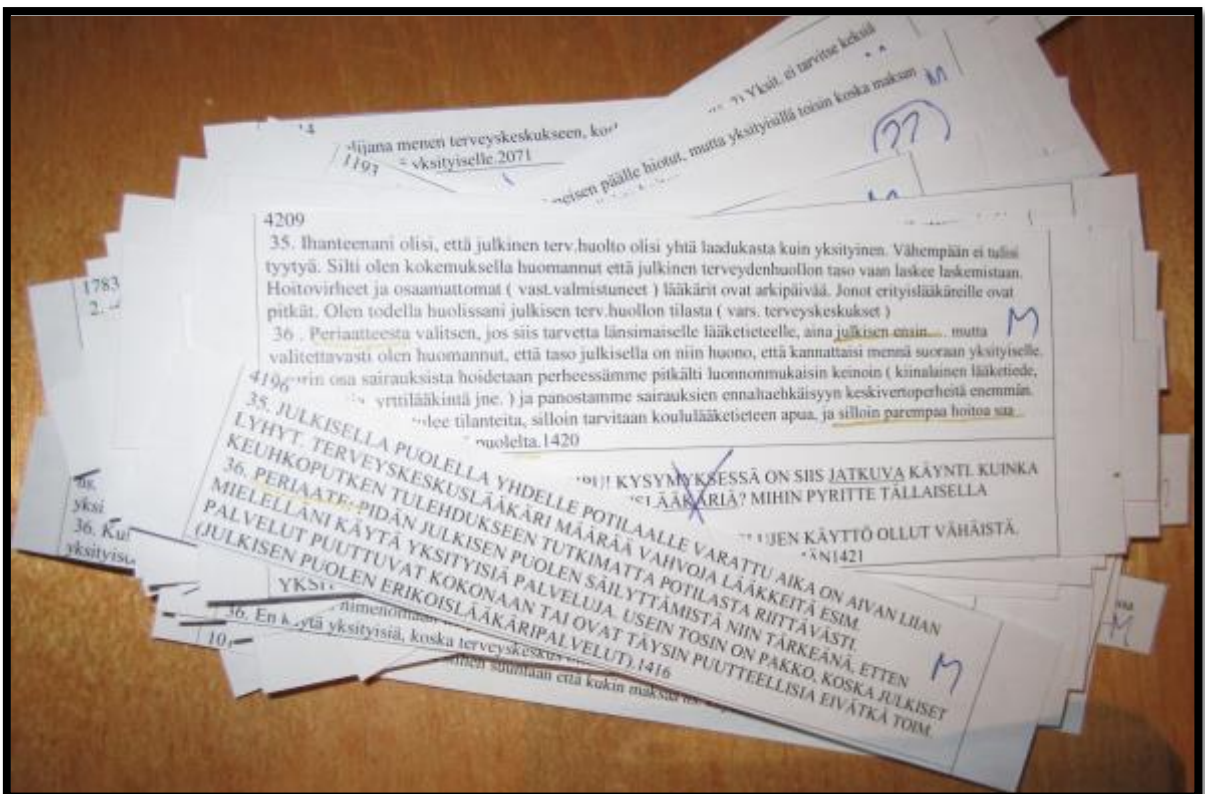 Yksit. ei tarvitse keksiä
toisin koska maksan
M
(??)
päälle hiotut, mutta yksityisillä
menen terveyskeskukseen,
1193
yksityiselle.2071
4209
35. Ihanteenani olisi, että julkinen terv.huolto olisi yhtä laadukasta kuin yksityinen. Vähempään ei tulisi
tyytyä. Silti olen kokemuksella huomannut että julkinen terveydenhuollon taso vaan laskee laskemistaan.
Hoitovirheet ja osaamattomat ( vast.valmistuneet ) lääkärit ovat arkipäivää. Jonot erityislääkäreille ovat
pitkät. Olen todella huolissani julkisen terv.huollon tilasta ( vars. terveyskeskukset )
36 . Periaatteesta valitsen, jos siis tarvetta länsimaiselle lääketieteelle, aina julkisen ensin.... mutta
M
valitettavasti olen huomannut, että taso julkisella on niin huono, että kannattaisi mennä suoraan yksityiselle.
osa sairauksista hoidetaan perheessämme pitkälti luonnonmukaisin keinoin ( kiinalainen lääketiede,
yrttilääkintä jne. ) ja panostamme sairauksien ennaltaehkäisyyn keskivertoperheitä enemmän.
tilanteita, silloin tarvitaan koululääketieteen apua, ja silloin parempaa hoitoa saa
puolelta.1420
KYSYMYKSESSÄ ON SIIS JATKUVA KÄYNTI. KUINKA
LÄÄKÄRIÄ? MIHIN PYRITTE TÄLLAISELLA
KÄYTTÖ OLLUT VÄHÄISTÄ.
4196
35. JULKISELLA PUOLELLA YHDELLE POTILAALLE VARATTU AIKA ON AIVAN LIIAN
LYHYT. TERVEYSKESKUSLÄÄKÄRI MÄÄRÄÄ VAHVOJA LÄÄKKEITÄ ESIM.
KEUHKOPUTKEN TULEHDUKSEEN TUTKIMATTA POTILASTA RIITTÄVÄSTI.
36. PERIAATE: PIDÄN JULKISEN PUOLEN SÄILYTTÄMISTÄ NIIN TÄRKEÄNÄ, ETTEN
MIELELLÄNI KÄYTÄ YKSITYISIÄ PALVELUJA. USEIN TOSIN ON PAKKO, KOSKA JULKISET
PALVELUT PUUTTUVAT KOKONAAN TAI OVAT TÄYSIN PUUTTEELLISIA EIVÄTKÄ TOIM.
(JULKISEN PUOLEN ERIKOISLÄÄKÄRIPALVELUT).1416
M
1783
2.
yksi
36.
36. En yksityisiä, koska
suuntaan että kukin maksaa
M